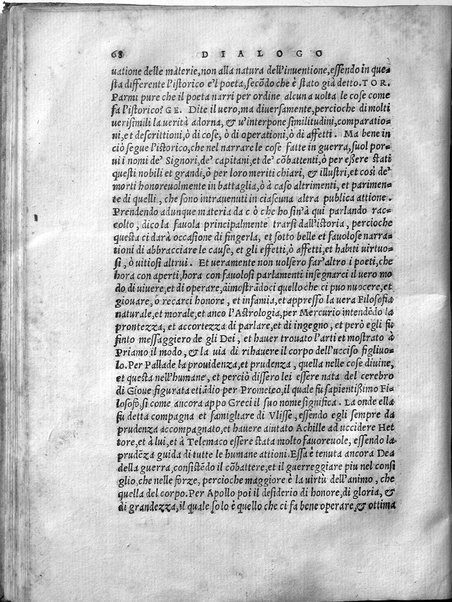 68 DIALOGO
uatione delle materie, non alla natura dell'inuentione, essendo in que
sta differente l'istorico e'l poeta, secōdo che è stato già detto. TOR.
Parmi pure che il poeta narri per ordine alcuna uolta le cose come
fa l'istorico? GE. Dite il uero, ma diuersamente, percioche di molti
uerisimili la uerità adorna, & u'interpone similitudini, comparatio-
ni, et descrittioni, ò di cose, ò di operationi, ò di affetti. Ma bene in
ciò segue l'istorico, che nel narrare le cose fatte in guerra, suol por-
ui i nomi de' Signori, de' capitani, et de' cōbattenti, ò per eßere stati
questi nobili et grandi, ò per loro meriti chiari, & illustri, et così de'
morti honoreuolmente in battaglia, ò à caso altrimenti, et parimen-
te di quelli, che sono intrauenuti in ciascuna altra publica attione.
Prendendo adunque materia da c ò che ho sin'à qui parlando rac-
colto, dico la fauola principalmente trarsi dall'istoria, percioche
questa ci darà occasione di fingerla, et sotto belle et fauolose narra-
tioni di abbracciare le cause, et gli effetti, ò affetti, et habiti uirtuo-
si, ò uitiosi altrui. Et ueramente non uolsero far'altro i poeti, che
hora con aperti, hora con fauolosi parlamenti insegnarci il uero mo
do di uiuere, et di operare, dimostrādoci quello che ci può nuocere, et
giouare, ò recarci honore, et infamia, et appresso la uera Filosofia
naturale, et morale, et anco l'Astrologia, per Mercurio intendēdo la
prontezza, et accortezza di parlare, et di ingegno, et però egli fu
finto messaggiero de gli Dei, et hauer trouato l'arti et mostrato à
Priamo il modo, & la uia di rihauere il corpo dell'ucciso figliuo-
lo. Per Pallade la prouidenza, et prudenza, quella nelle cose diuine,
et questa nell'humane, et perciò dissero lei essere nata del cerebro
di Gioue figurata etiādio per Prometeo, il quale fu sapientißimo Fi-
losofo, sì come ancora appo Greci il suo nome significa. La onde ella
fu detta compagna et famigliare di Vlisse, essendo egli sempre da
prudenza accompagnato, et hauere aiutato Achille ad uccidere Het
tore, et à lui, et à Telemaco essere stata molto fauoreuole, essendo la
prudēza guida di tutte le humane attioni. Essa è tenuta ancora Dea
della guerra, consistēdo il cōbattere, et il guerreggiare piu nel consi
glio, che nelle forze, percioche maggiore è la uirtù dell'animo, che
quella del corpo. Per Apollo poi il desiderio di honore, di gloria, &
di grandezza, il quale solo è quello che ci fa bene operare, & ottima